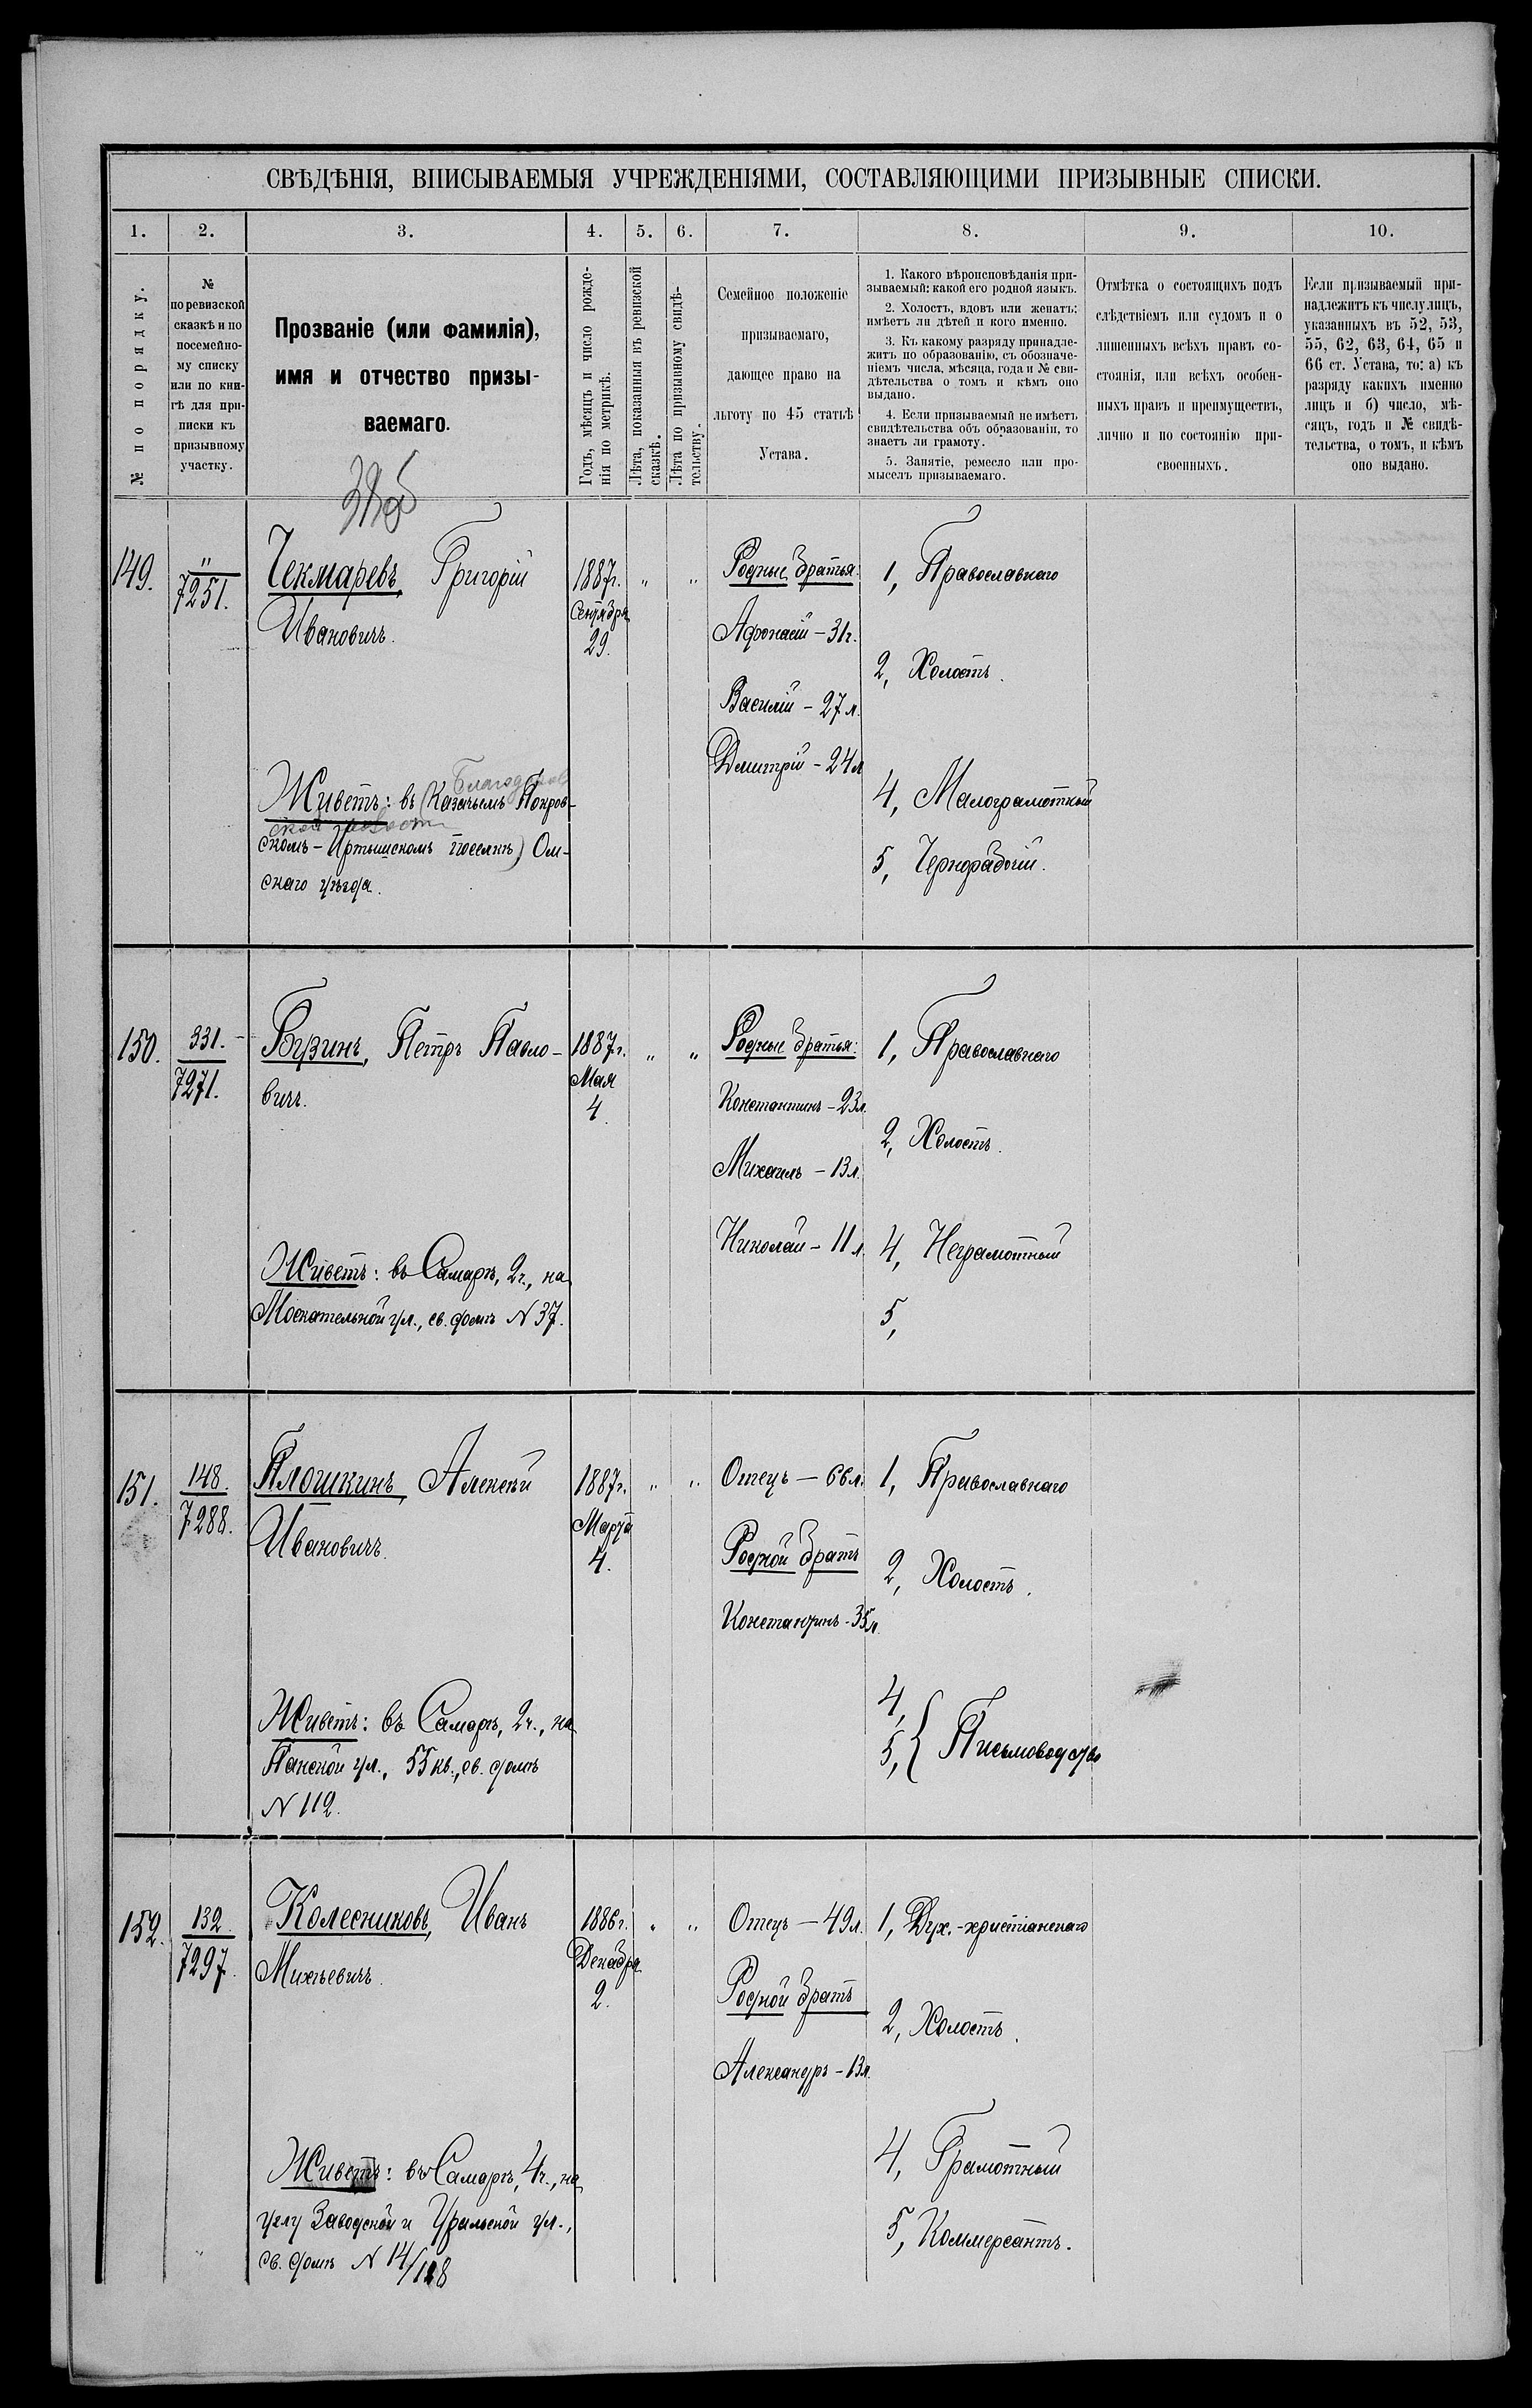 СВѢДѢНІЯ, ВПИСЫВАЕМЫЯ УЧРЕЖДЕНІЯМИ, СОСТАВЛЯЮЩИМИ ПРИЗЫВНЫЕ СПИСКИ.
1. 2. 3. 4. 5. 6. 7. 8. 9. 10.
№ по порядку.
№
по ревизской
сказкѣ и по
посемейно-
му списку
или по кни-
гѣ для при-
писки къ
призывному
участку.
Прозваніе (или фамилія),
имя и отчество призы-
ваемаго.
Годъ, мѣсяцъ и число рожде-
нія по метрикѣ.
Лѣта, показанныя въ ревизской
сказкѣ.
Лѣта по призывному свидѣ-
тельству.
Семейное положеніе
призываемаго,
дающее право на
льготу по 45 статьѣ
Устава.
1. Какого вѣроисповѣданія при-
зываемый: какой его родной языкъ.
2. Холостъ, вдовъ или женатъ:
имѣетъ ли дѣтей и кого именно.
3. Къ какому разряду принадле-
житъ по образованію, съ обозначе-
ніемъ числа, мѣсяца, года и № сви-
дѣтельства о томъ и кѣмъ оно
выдано.
4. Если призываемый не имѣетъ
свидѣтельства объ образованіи, то
знаетъ ли грамоту.
5. Занятіе, ремесло или про-
мыселъ призываемаго.
Отмѣтка о состоящихъ подъ
слѣдствіемъ или судомъ и о
лишенныхъ всѣхъ правъ со-
стоянія, или всѣхъ особен-
ныхъ правъ и преимуществъ,
лично и по состоянію при-
своенныхъ.
Если призываемый при-
надлежитъ къ числу лицъ,
указанныхъ въ 52, 53,
55, 62, 63, 64, 65 и
66 ст. Устава, то: а) къ
разряду какихъ именно
лицъ и б) число, мѣ-
сяцъ, годъ и № свидѣ-
тельства, о томъ, и кѣмъ
оно выдано.
149.
"
7251.
Чекмаревъ, Григорій
Ивановичъ.
Живетъ: въ (Казачьемъ Покров-
скомъ-Иртышскомъ поселкѣ) Ом-
скаго уѣзда.
1887г.
Сентября
29.
" "
Родные братья:
Афонасій - 31г.
Василій - 27 л.
Дмитрій - 24 л
1, Православнаго
2, Холостъ.
4, Малограмотный
5, Чернорабочій.
150.
331.
7271.
Рогузинъ, Петръ Павло-
вичъ.
Живетъ: въ Самарѣ, 2ч., на
Москательной ул., св. домъ N 37.
1887г.
Мая
4.
" "
Родные братья:
Константинъ - 23л.
Михаилъ - 13 л.
Николай - 11 л.
1, Православнаго
2, Холостъ.
4, Неграмотный
5,
151.
148.
7288.
Плошкинъ, Алексѣй
Ивановичъ.
Живетъ: въ Самарѣ, 2ч., на
Панской ул., 55 кв., св. домъ
N 112.
1887г.
Марта
4.
" "
Отецъ - 66 л.
Родной братъ
Константинъ - 35 л.
1, Православнаго
2, Холостъ.
4,
5, { Письмоводство
152.
132.
7297.
Колесниковъ, Иванъ
Михѣевичъ.
Живетъ: въ Самарѣ, 4ч., на
углу Заводской и Уральской ул.,
св. домъ N 14/128
1886 г.
Декабря
2.
" "
Отецъ - 49 л.
Родной братъ
Александръ - 13 л.
1, Дух.-христіанскаго
2, Холостъ.
4, Грамотный
5, Коммерсантъ.